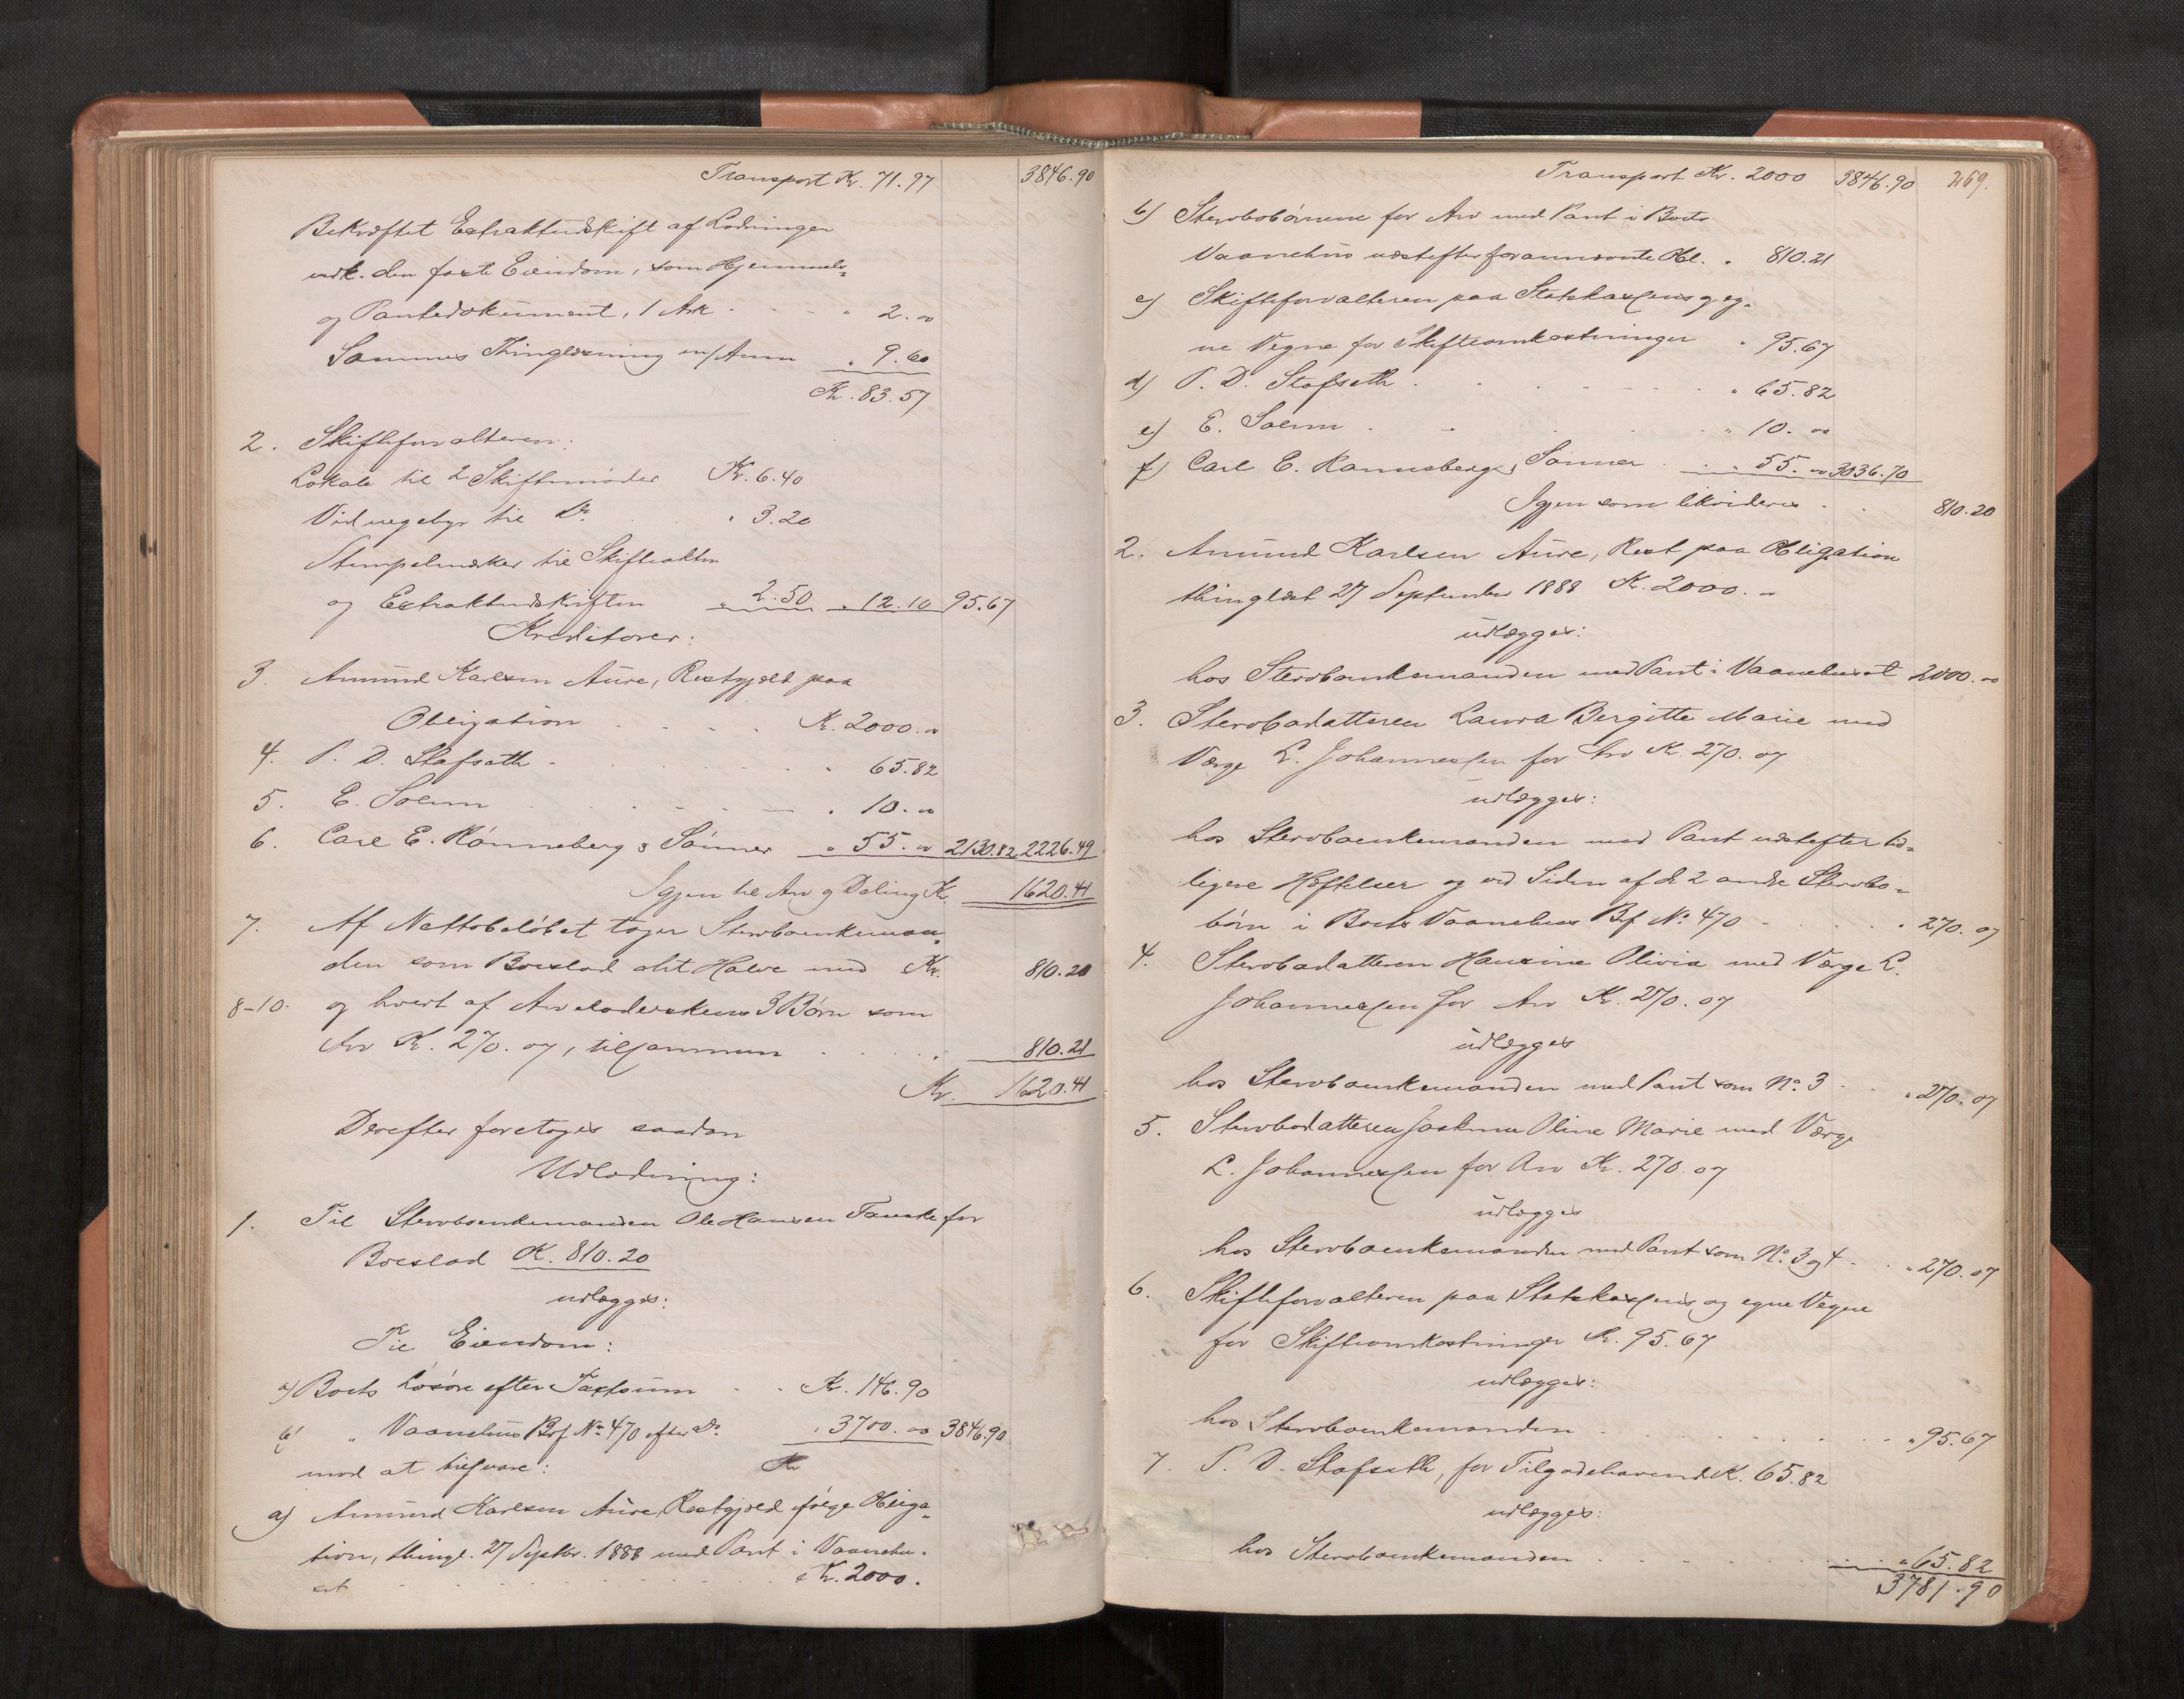 Transport Kr. 71.97 3846.90
Bekræftet Extraktudskrift af Lodningen
vedk. den faste Eiendom, som Hjemmels-
og Pantedokument, 1 Ark " 2.00
Sammes Thinglæsning m/Anm " 9.60
Kr. 83.57
2. Skifteforvalteren:
Lokale til 2 Skiftemøder Kr. 6.40
Vidnegebyr til Do " 3.20
Stempelmærker til Skifteakten
og Extraktudskriften " 2.50 " 12.10 95.67
Kreditorer:
3. Amund Karlsen Aure, Restgjæld paa
Obligation Kr. 2000.00
4. P. D. Stafseth " 65.82
5. E. Solem " 10.00
6. Carl E. Rønneberg & Sønner " 55.00 2130.82 2226.49
Igjen til Arv og Deling Kr. 1620.41
7. Af Nettobeløbet tager Stervboenkeman-
den som Boeslod det Halve med Kr. 810.20
8-10. og hvert af Arveladerskens 3 Børn som
Arv Kr. 270.07, tilsammen 810.21
Kr. 1620.41
Derefter foretoges saadan
Udlodning:
1. Til Stervboenkemanden Ole Hansen for
Boeslod Kr. 810.20
udlægges:
Til Eiendom:
a) Boets Løsøre efter Taxtsum Kr. 146.90
b) " Vaanehus Bf No. 470 efter Do " 3700.00 3846.90
mod at tilsvare: Kr
a) Amund Karlsen Aure, Restgjæld ifølge Obliga-
tion, thingl. 27 Septbr. 1888 med Pant i Vaanehu-
set Kr. 2000.
Transport Kr. 2000 3846.90 269.
b) Stervbobørnene for Arv med Pant i Boets
Vaanehus næstefter forannævnte Obl. " 810.21
c) Skifteforvalteren paa Statskassens og eg-
ne Vegne for Skifteomkostninger " 95.67
d) P. D. Stafseth " 65.82
e) E. Solem " 10.00
f) Carl E. Rønneberg & Sønner " 55.00 3036.70
Igjen som likvideres 810.20
2. Amund Karlsen Aure, Rest paa Obligation
thinglæst 27 September 1888 Kr. 2000.-
udlægges:
hos Stervboenkemanden med Pant i Vaanehuset 2000.00
3. Stervbodatteren Laura Bergitte Marie med
Værge L. Johannessen for Arv Kr. 270.07
udlægges:
hos Stervboenkemanden med Pant næstefter tid-
ligere Hæftelser og ved Siden af de 2 andre Stervbo-
børn i Boets Vaanehus Bf No. 470 " 270.07
4. Stervbodatteren Hansine Olivia med Værge L.
Johannessen for Arv Kr. 270.07
udlægges
hos Stervboenkemanden med Pant som No. 3 " 270.07
5. Stervbodatteren Oline Marie med Værge
L. Johannessen for Arv Kr. 270.07
udlægges
hos Stervboenkemanden med Pant som No. 3 og 4 " 270.07
6. Skifteforvalteren paa Statskassens og egne Vegne
for Skifteomkostninger Kr. 95.67
udlægges:
hos Stervboenkemanden " 95.67
7. P. D. Stafseth, for Tilgodehavende Kr. 65.82
udlægges:
hos Stervboenkemanden " 65.82
3781.90